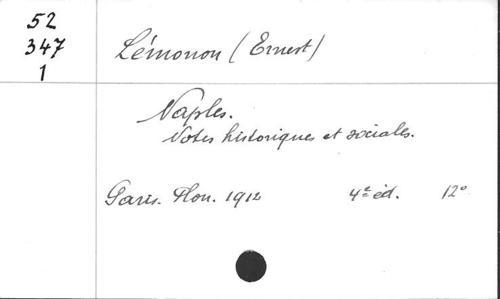 52
347
1
Lémonon (Ernest)
Naples.
Notes historiques et sociales.
Paris. Plon. 1912 4e éd. 12°